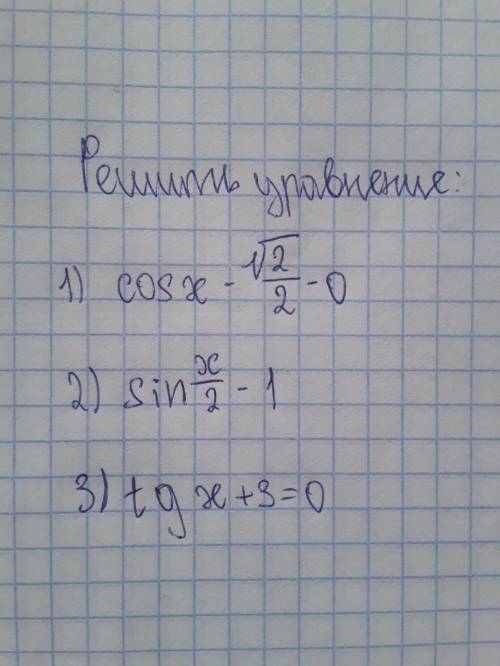 Решить уравнение:
1) cosx - √2/2 - 0
2) sin x/2 - 1
3) tg x + 3 = 0